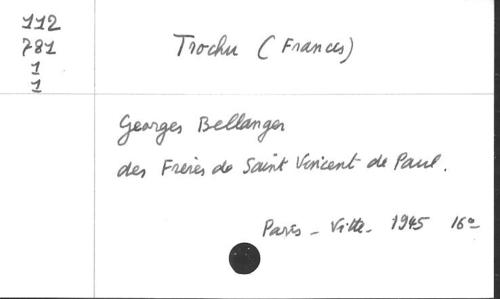 112
781
1
1
Trochu (Frances)
Georges Bellanger
des Frères de Saint Vincent de Paul.
Paris - Vitte - 1945 16°